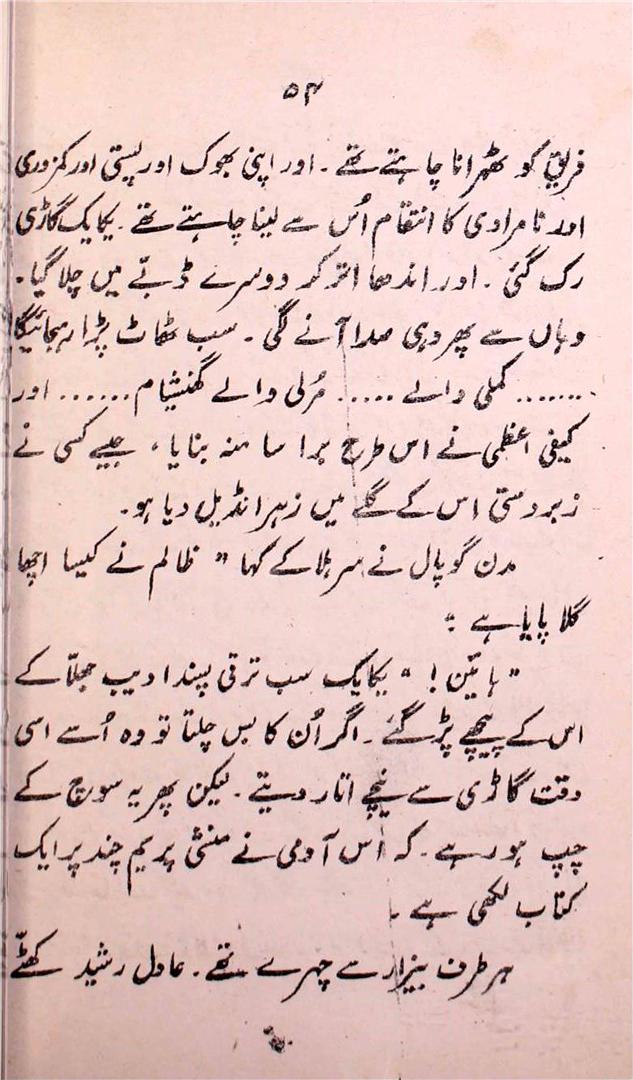 ۵۴
فریق کو ٹھہرانا چاہتے تھے ۔ اور اپنی بھوک اور پستی اور کمزوری
اور نامرادی کا انتقام اُس سے لینا چاہتے تھے ۔ یکایک گاڑی
رک گئی ۔ اور اندھا اتر کر دوسرے ڈبّے میں چلا گیا ۔
وہاں سے پھر وہی صدا آنے لگی ۔ سب ٹھاٹ پڑا رہجائیگا
........ کملی والے ..... مُرلی والے گھنشیام ...... اور
کیفی اعظمی نے اس طرح برا سا منہ بنایا ، جیسے کسی نے
زبردستی اس کے گلے میں زہر انڈیل دیا ہو۔
مدن گوپال نے سر ہلا کے کہا " ظالم نے کیسا اچھا
گلا پایا ہے "
" ہائیں ! " یکایک سب ترقی پسند ادیب جھلّا کے
اس کے پیچھے پڑ گئے ۔ اگر اُن کا بس چلتا تو وہ اُسے اسی
وقت گاڑی سے نیچے اتار دیتے ۔ لیکن پھر یہ سوچ کے
چپ ہو رہے ۔ کہ اُس آدمی نے منشی پریم چند پر ایک
کتاب لکھی ہے ۔
ہر طرف بیزار سے چہرے تھے ۔ عادل رشید کھٹّے